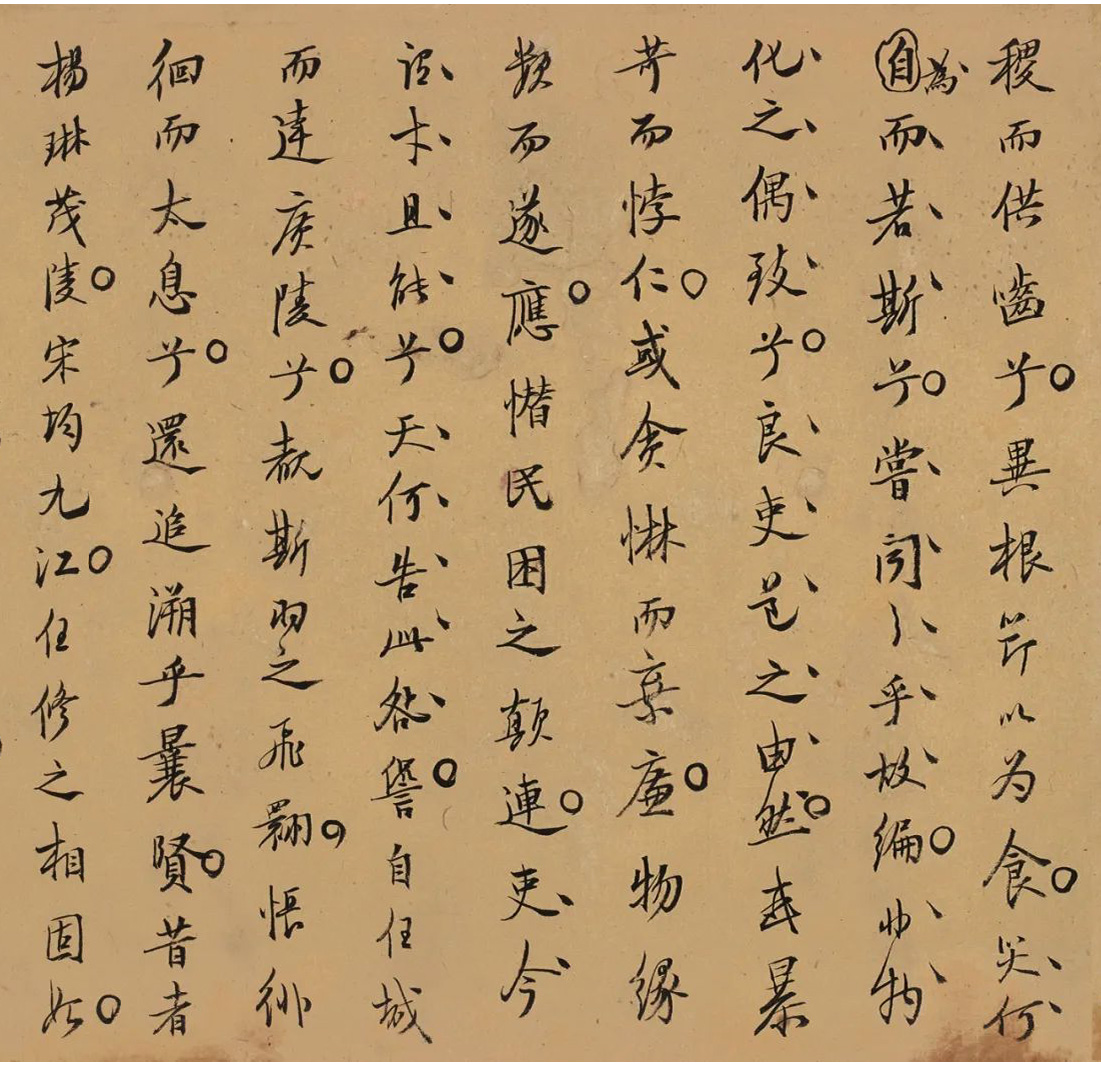 稷而供齒兮異根節以为食災何
自為而若斯兮嘗聞之乎故編物
化之偶致兮良吏之由然或暴
苛而悖仁或貪惏而棄廉物緣
類而遂應憯民困之顛連吏今
且能兮天何告此咎譽自任城
而達陵兮斯羽之飛翾悵徘
徊而太息兮還追溯乎曩賢昔者
楊琳茂陵宋均九江任修之相固始